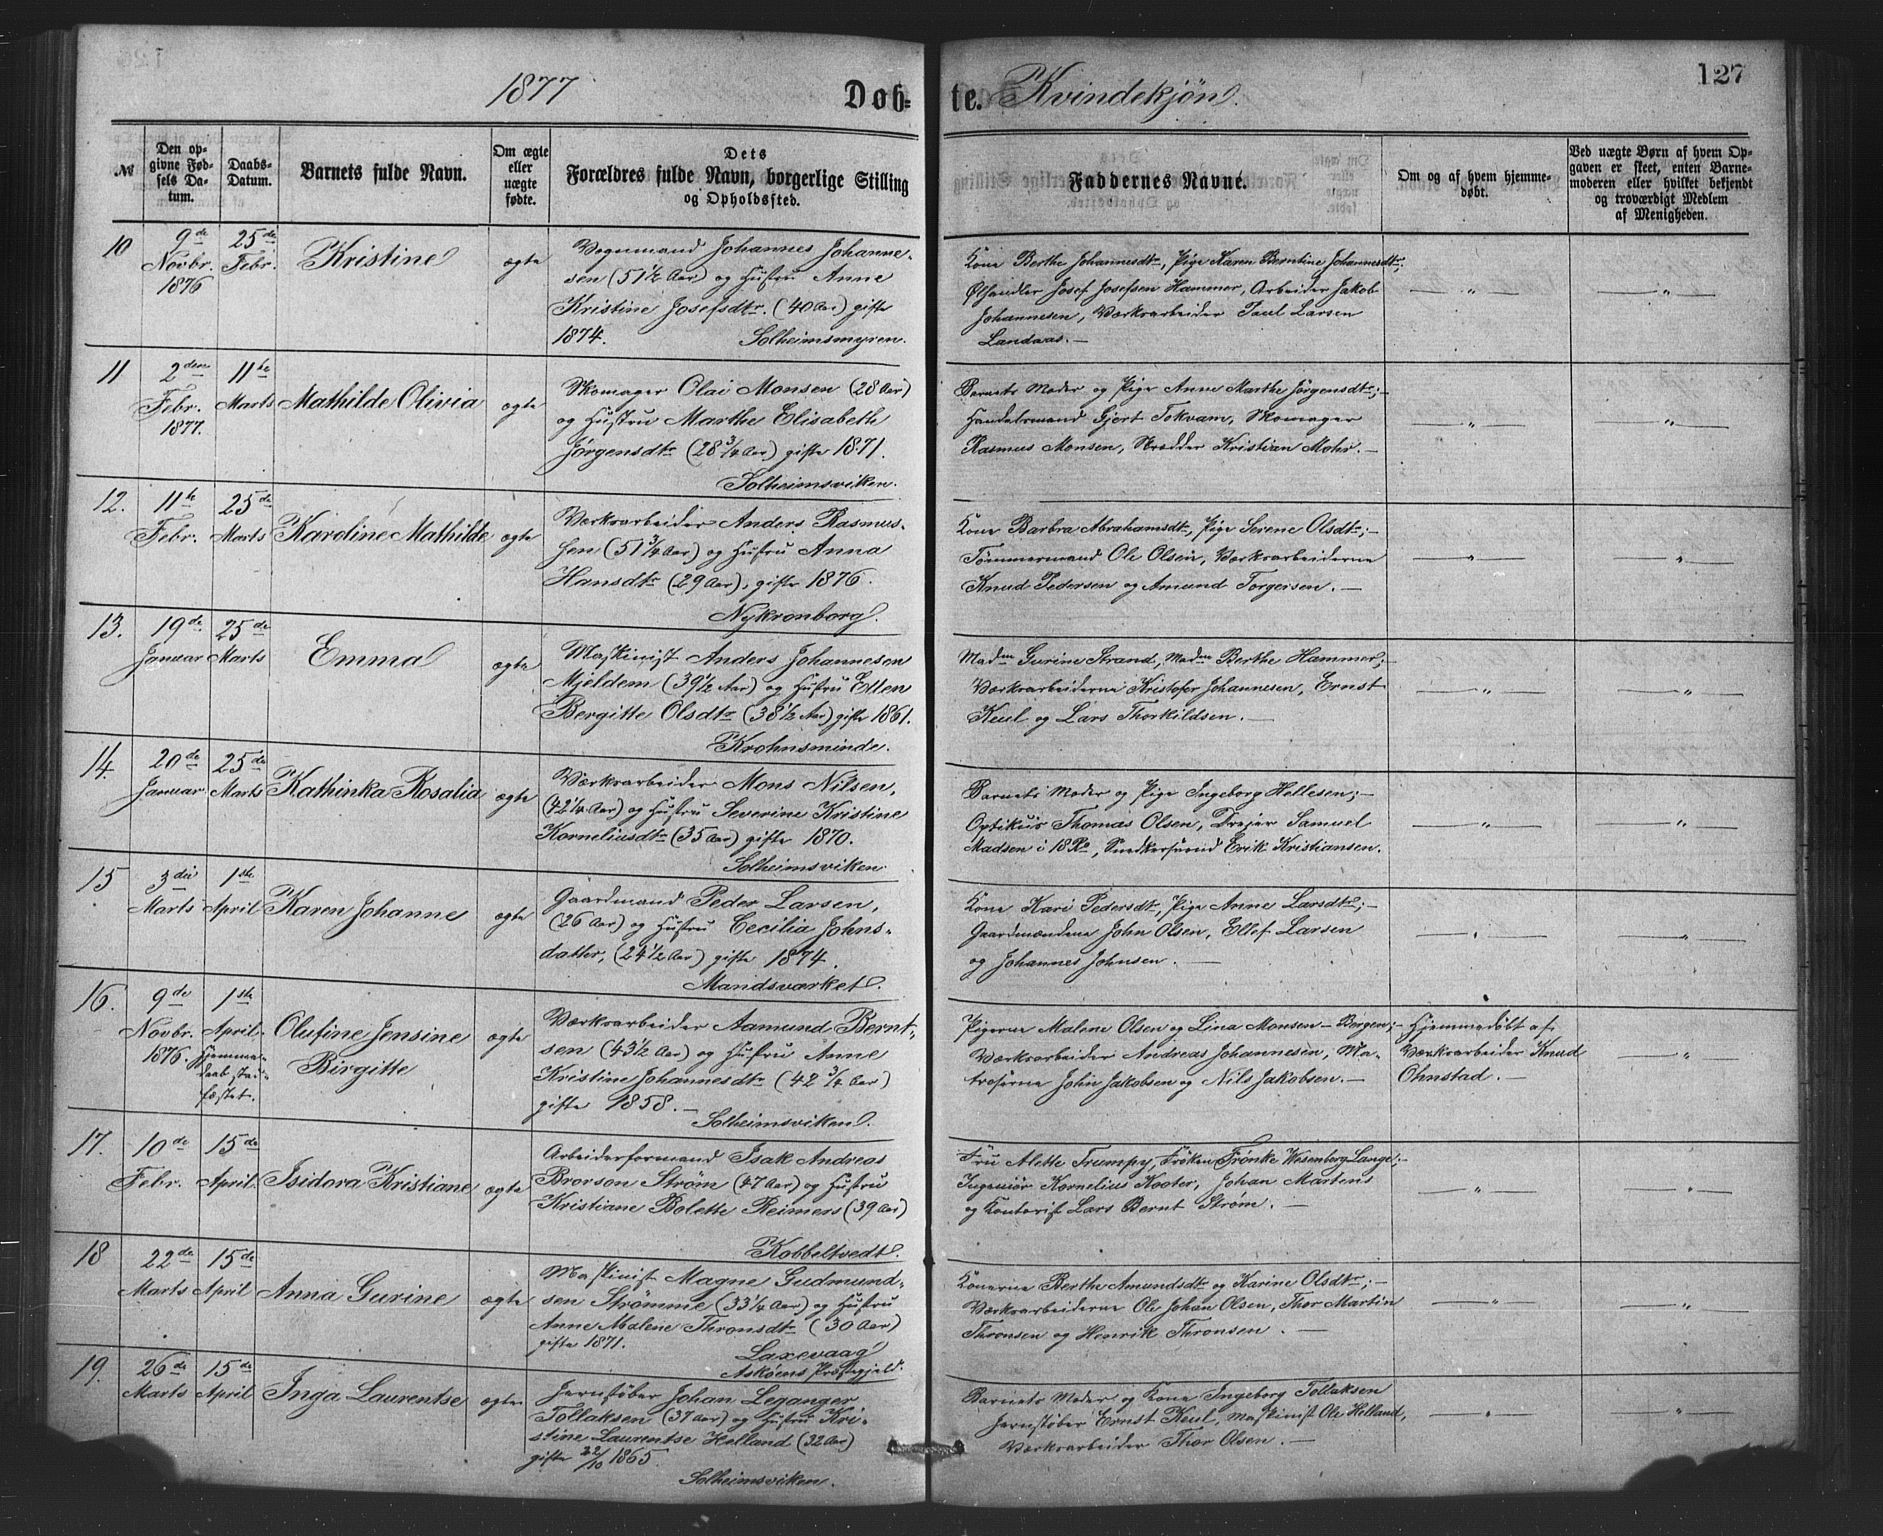 1877
Døb-
te. Kvindekjøn.
127
№
Den op-
givne Fød-
sels Da-
tum.
Daabs-
Datum.
Barnets fulde Navn.
Om ægte
eller
uægte
fødte.
Dets
Forældres fulde Navn, borgerlige Stilling
og Opholdssted.
Faddernes Navne.
Om og af hvem hjemme-
døbt.
Ved uægte Børn af hvem Op-
gaven er skeet, enten Barne-
moderen eller hvilket bekjendt
og troværdigt Medlem
af Menigheden.
10
9de
Novbr.
1876
25de
Febr.
Kristine
ægte
Vognmand Johannes Johanne-
sen (51 1/2 Aar) og Hustru Anne
Kristine Josefsdtr. (40 Aar) gifte
1874. Solheimsmyren.
Kone Berthe Johannesdtr, Pige Karen Berntine Johannesdtr;
Ølhandler Josef Josefsen Hammer, Arbeider Jakob
Johannesen, Værksarbeider Paul Larsen
Landaas. —
— " —
— " —
11
2den
Febr.
1877.
11te
Marts
Mathilde Olivia
ægte
Skomager Olai Monsen (28 Aar)
og Hustru Marthe Elisabeth
Jørgensdtr (28 3/4 Aar) gifte 1871.
Solheimsviken.
Barnets Moder og Pige Anne Marthe Jørgensdtr; —
Handelsmand Gjert Tokvam, Skomager
Rasmus Monsen, Skrædder Kristian Mohr. —
— " —
— " —
12.
11te
Febr.
25de
Marts
Karoline Mathilde
ægte
Værksarbeider Anders Rasmus-
sen (51 3/4 Aar) og Hustru Anna
Hansdtr (29 Aar), gifte 1876.
Nykronborg.
Kone Barbra Abrahamsdtr, Pige Serene Olsdtr; —
Tømmermand Ole Olsen, Værksarbeiderne
Knud Pedersen og Amund Torgersen. —
— " —
— " —
13.
19de
Januar
25de
Marts
Emma
ægte
Maskinist Anders Johannesen
Mjeldem (39 1/2 Aar) og Hustru Ellen
Bergitte Olsdtr (38 1/2 Aar) gifte 1861.
Krohnsminde.
Madm Gurine Strand, Madm Berthe Hammer; —
Værksarbeiderne Kristofer Johannesen, Ernst
Keul og Lars Thorkildsen. —
— " —
— " —
14
20de
Januar
25de
Marts
Kathinka Rosalia
ægte
Værksarbeider Mons Nilsen,
(42 1/4 Aar) og Hustru Severine Kristine
Korneliusdtr (35 Aar) gifte 1870.
Solheimsviken
Barnets Moder og Pige Ingeborg Hellesen; —
Optikus Thomas Olsen, Dreier Samuel
Madsen i 18 Ro, Snedkersvend Erik Kristiansen.
— " —
— " —
15
3die
Marts
1ste
April
Karen Johanne
ægte
Gaardmand Peder Larsen,
(26 Aar) og Hustru Cecilia Johns-
datter, (24 1/2 Aar) gifte 1874.
Mandsværket.
Kone Kari Pedersdtr, Pige Anne Larsdtr; —
Gaardmændene John Olsen, Ellef Larsen
og Johannes Johnsen. —
— " —
— " —
16.
9de
Novbr.
1876.
1ste
April.
Hjemme-
daab stad-
fæstet.
Olufine Jensine
Birgitte
ægte
Værksarbeider Aamund Bernt-
sen (43 1/2 Aar) og Hustru Anne
Kristine Johannesdtr (42 3/4 Aar)
gifte 1858. — Solheimsviken.
Pigerne Malene Olsen og Lina Monsen — Bergen; —
Værksarbeider Andreas Johannesen, Ma-
troserne John Jakobsen og Nils Jakobsen. —
Hjemmedøbt af
Værksarbeider Knud
Ohnstad. —
— " —
17.
10de
Febr.
15de
April.
Isidora Kristiane
ægte
Arbeiderformand Isak Andreas
Brorson Strøm (47 Aar) og Hustru
Kristiane Bolette Reimers (39 Aar)
Kobbeltvedt.
Fru Alette Trumpy, Frøken Frønke Wesenberg Lange; —
Ingeniør Kornelius Kooter, Johan Martens
og Kontorist Lars Bernt Strøm. —
— " —
— " —
18
22de
Marts
15de
April
Anna Gurine
ægte
Maskinist Magne Gudmund-
sen Strømme (33 1/4 Aar) og Hustru
Anne Malene Thronsdtr (30 Aar)
gifte 1871. Laxevaag
Askøens Præstegjeld.
Konerne Berthe Amundsdtr og Karine Olsdtr; —
Værksarbeiderne Ole Johan Olsen, Thor Martin
Thronsen og Henrik Thronsen. —
— " —
— " —
19.
26de
Marts
15de
April
Inga Laurentse
ægte
Jernstøber Johan Leganger
Tollaksen (37 Aar) og Hustru Kri-
stine Laurentse Helland (32 Aar)
gifte 22/10 1865.
Solheimsviken.
Barnets Moder og Kone Ingeborg Tollaksen
Jernstøber Ernst Keul, Maskinist Ole Helland,
Værksarbeider Thor Olsen. —
— " —
— " —